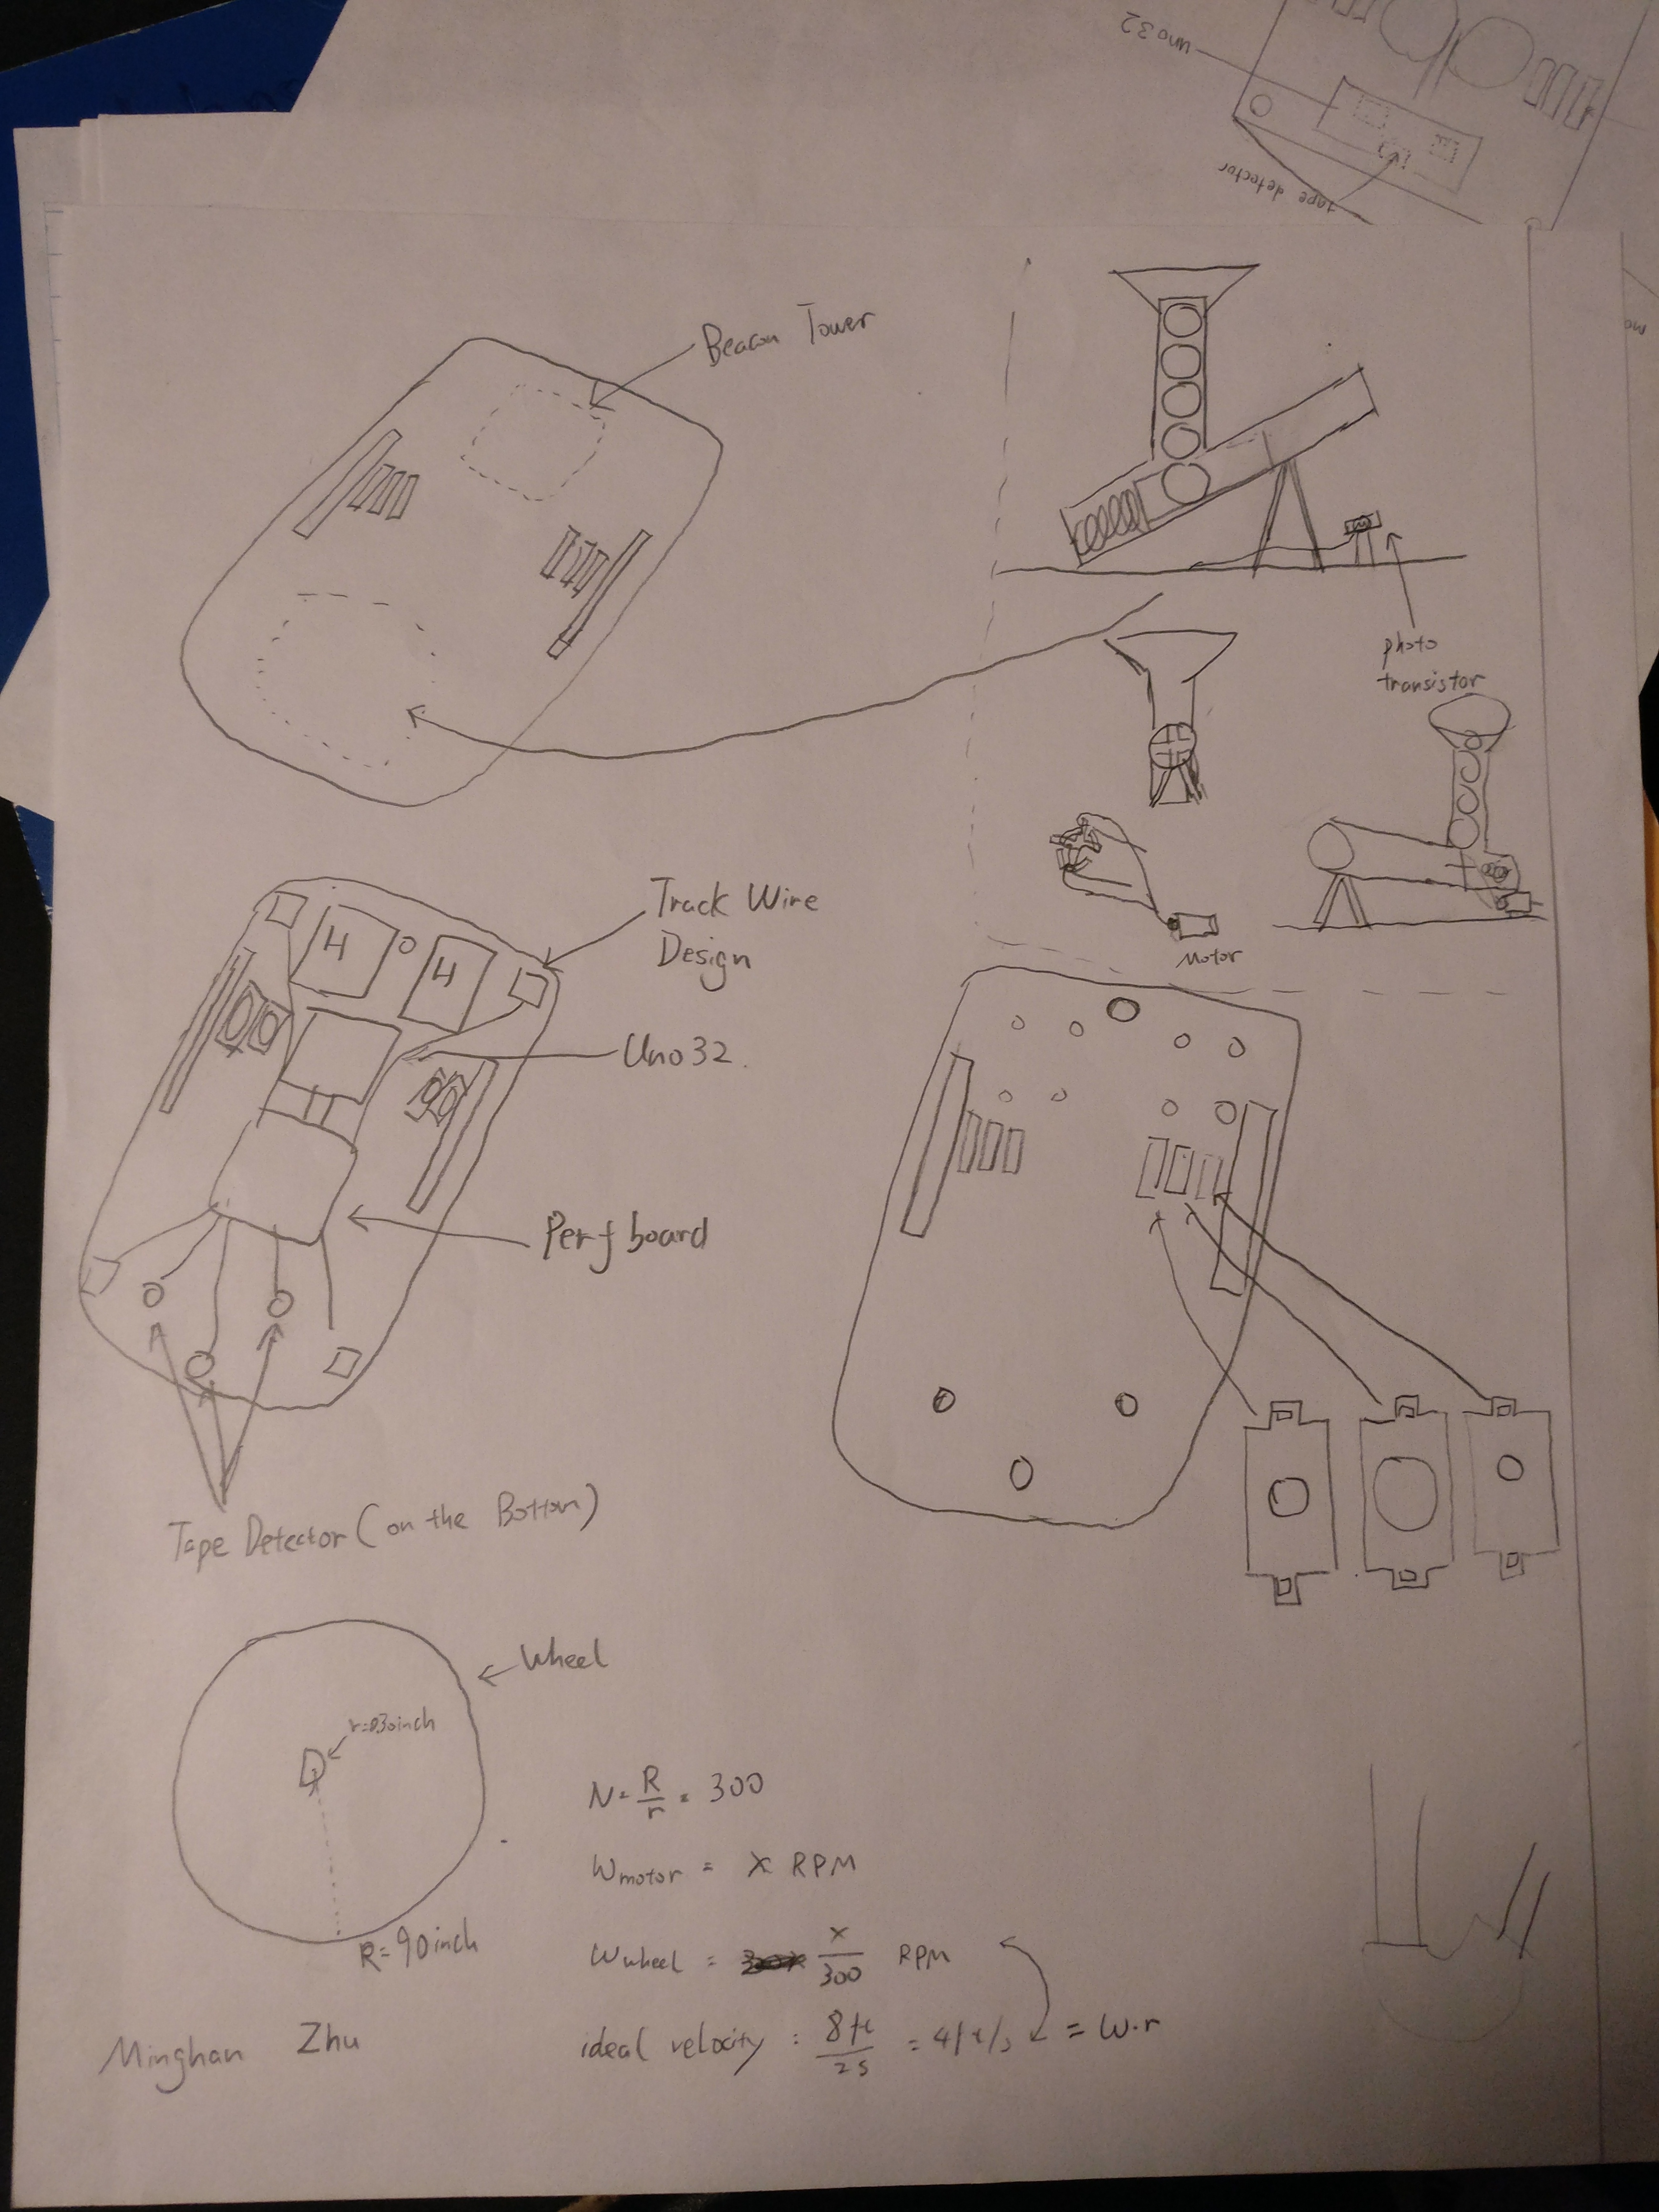 Uno32
tape detector
Beacon Tower
photo
transistor
Motor
Track Wire
Design
H
H
Uno32.
Perf board
Tape Detector (on the Bottom)
Wheel
r=030inch
R=90inch
N = R/r = 300
Wmotor = X RPM
Wwheel = X/300 RPM
ideal velocity = 8ft/2s = 4ft/s = W·r
Minghan Zhu